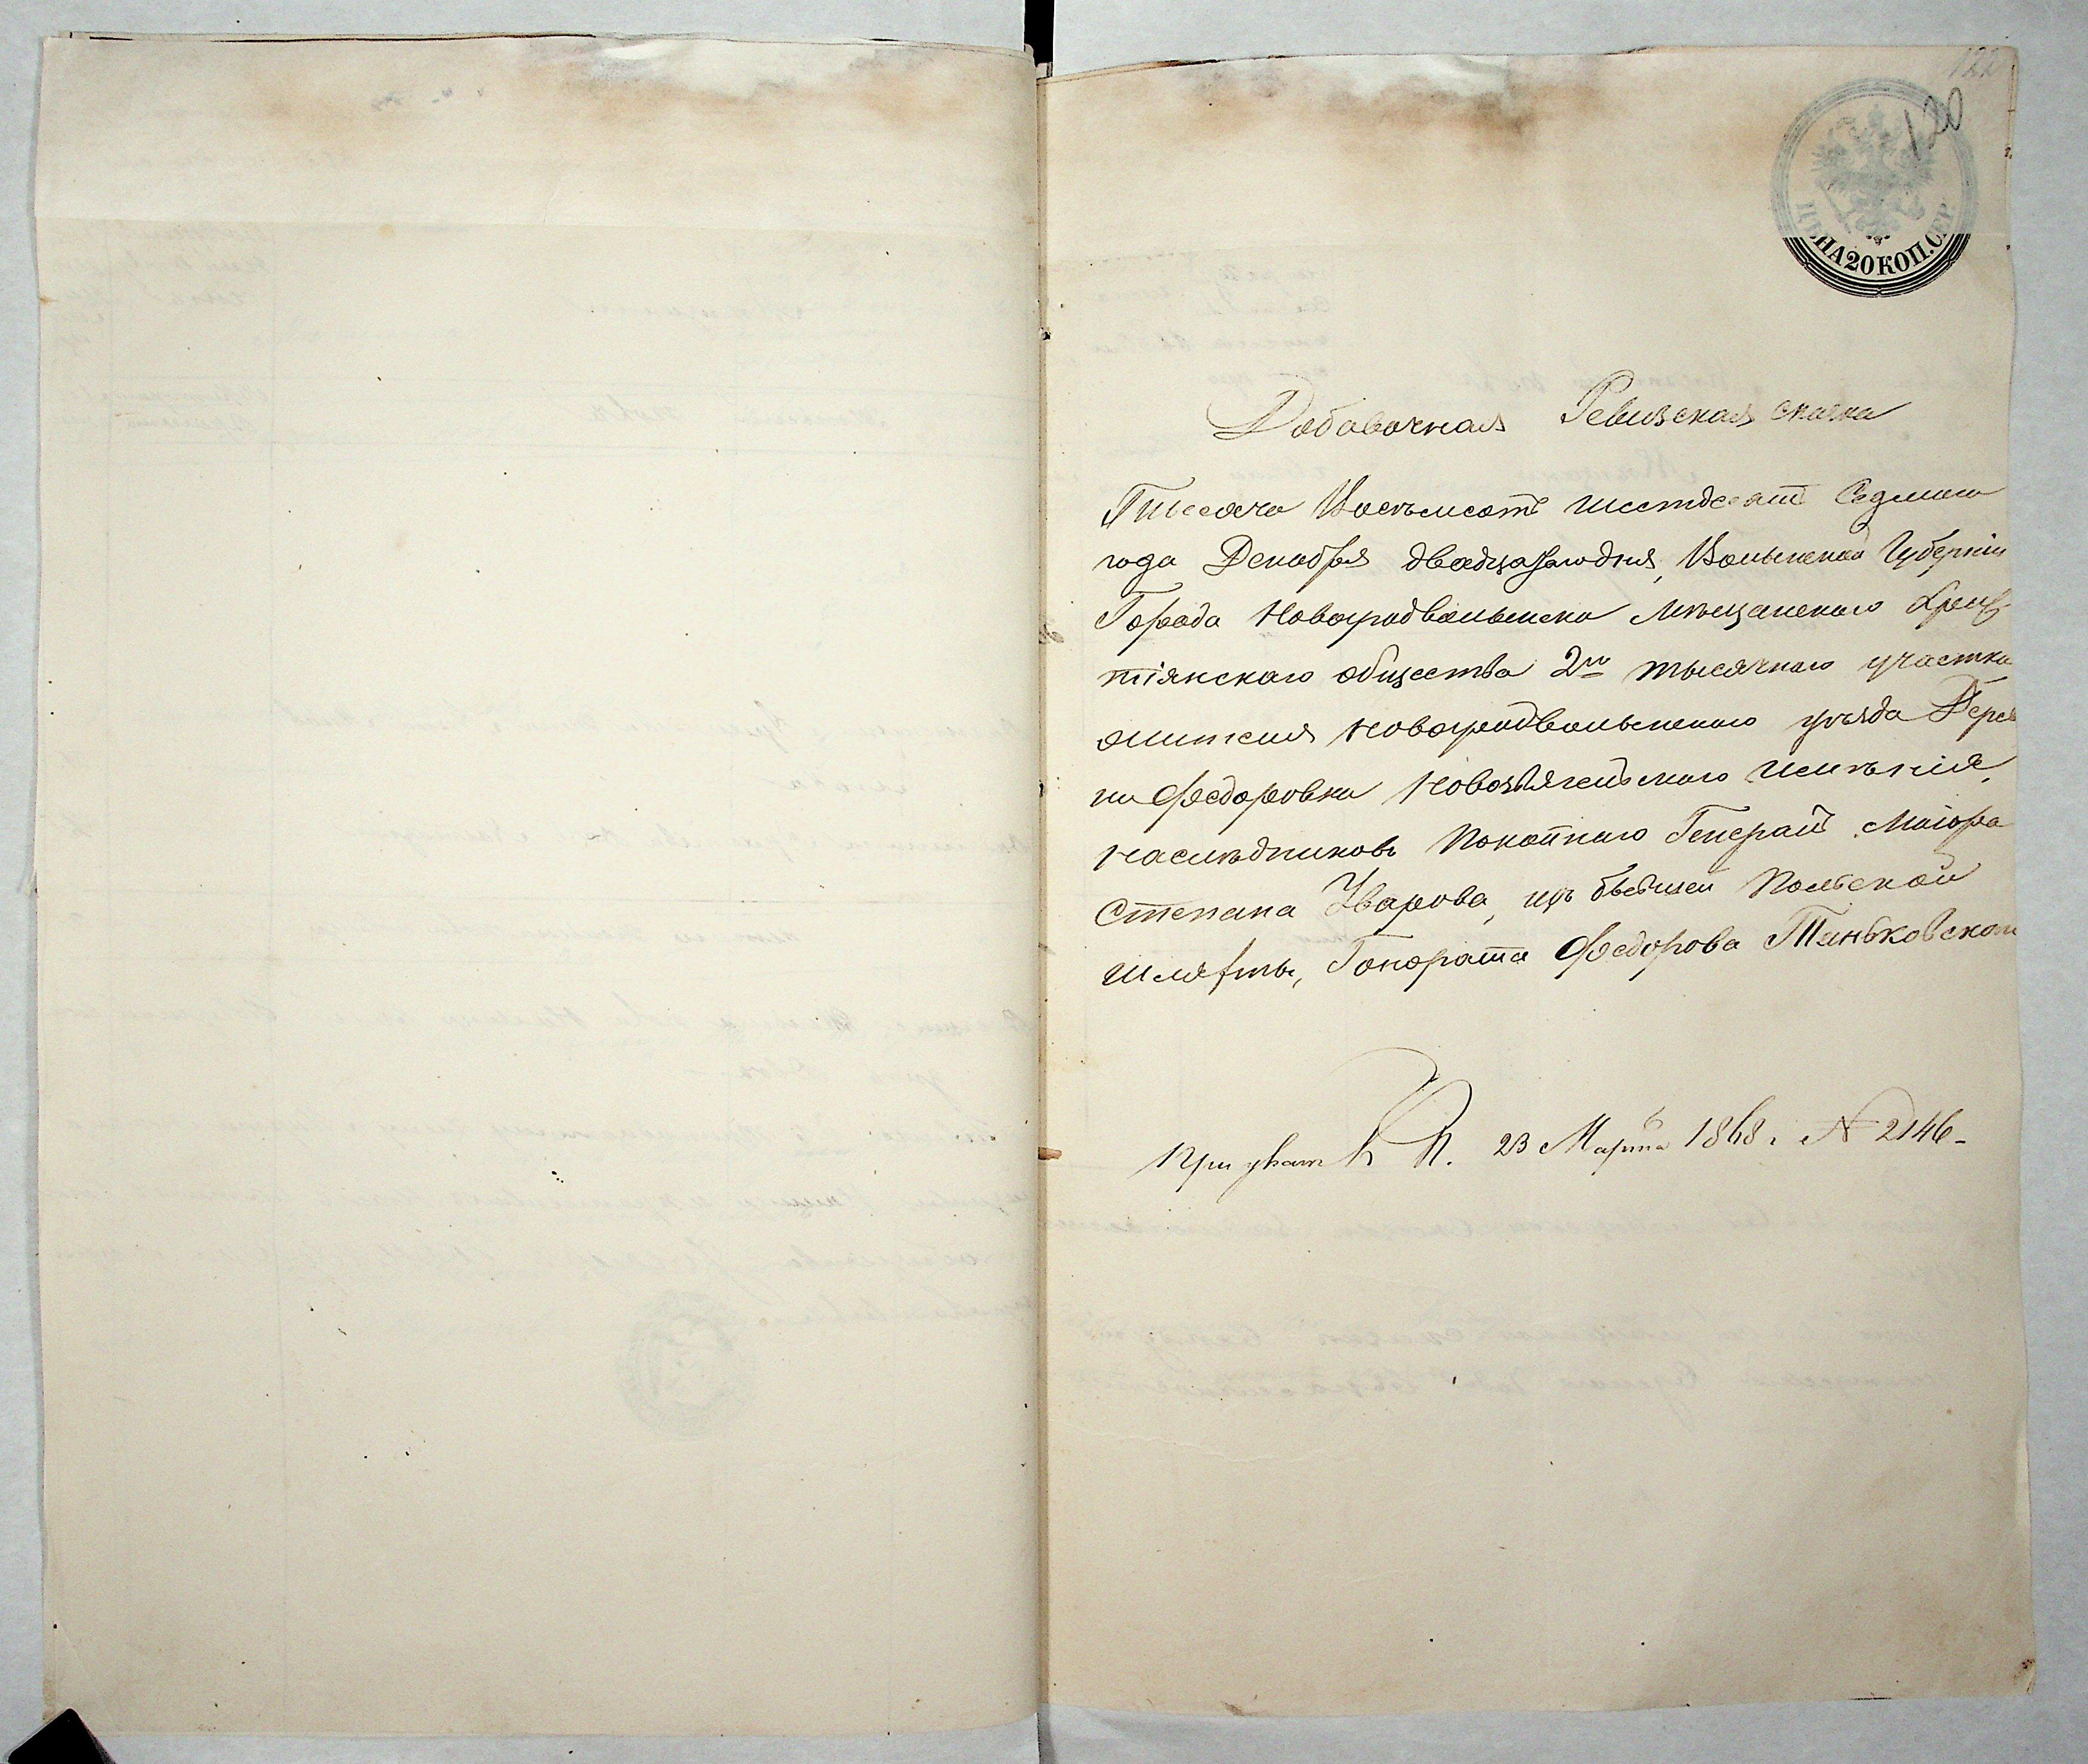 122
120
ЦѢНА 20 КОП. СЕР
Добавочная Ревизская сказка
Тысяча Восемьсотъ шестдесят Седмаго
года Декабря двадцатаго дня, Волынской Губерніи
Города Новоградволынска Мѣщанскаго Христ
тіянскаго общества 2го тысячнаго участка
жителя Новоградволынскаго уѣзда Дерев
ни Федоровки Новозвягельского имѣнія,
наслѣдниковъ Покойнаго Генералъ Маіора
Степана Уварова, изъ бывшей Польской
шляхты, Гонората Федорова Таньковскаго
При указѣ К. П. 23 Марта 1868 г. № 2146-